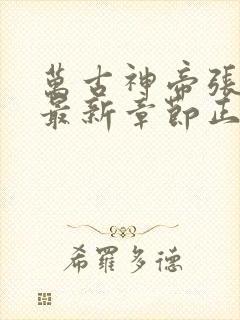 萬古神帝張
最新章節正
希羅多德